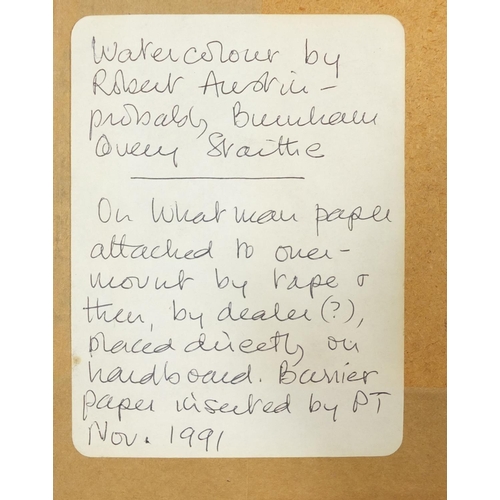 Watercolour by
Robert Austin –
probably Burnham
Overy Staithe
On Whatman paper
attached to over-
mount by tape &
then, by dealer (?),
placed directly on
hardboard. Barrier
paper inserted by PT
Nov. 1991